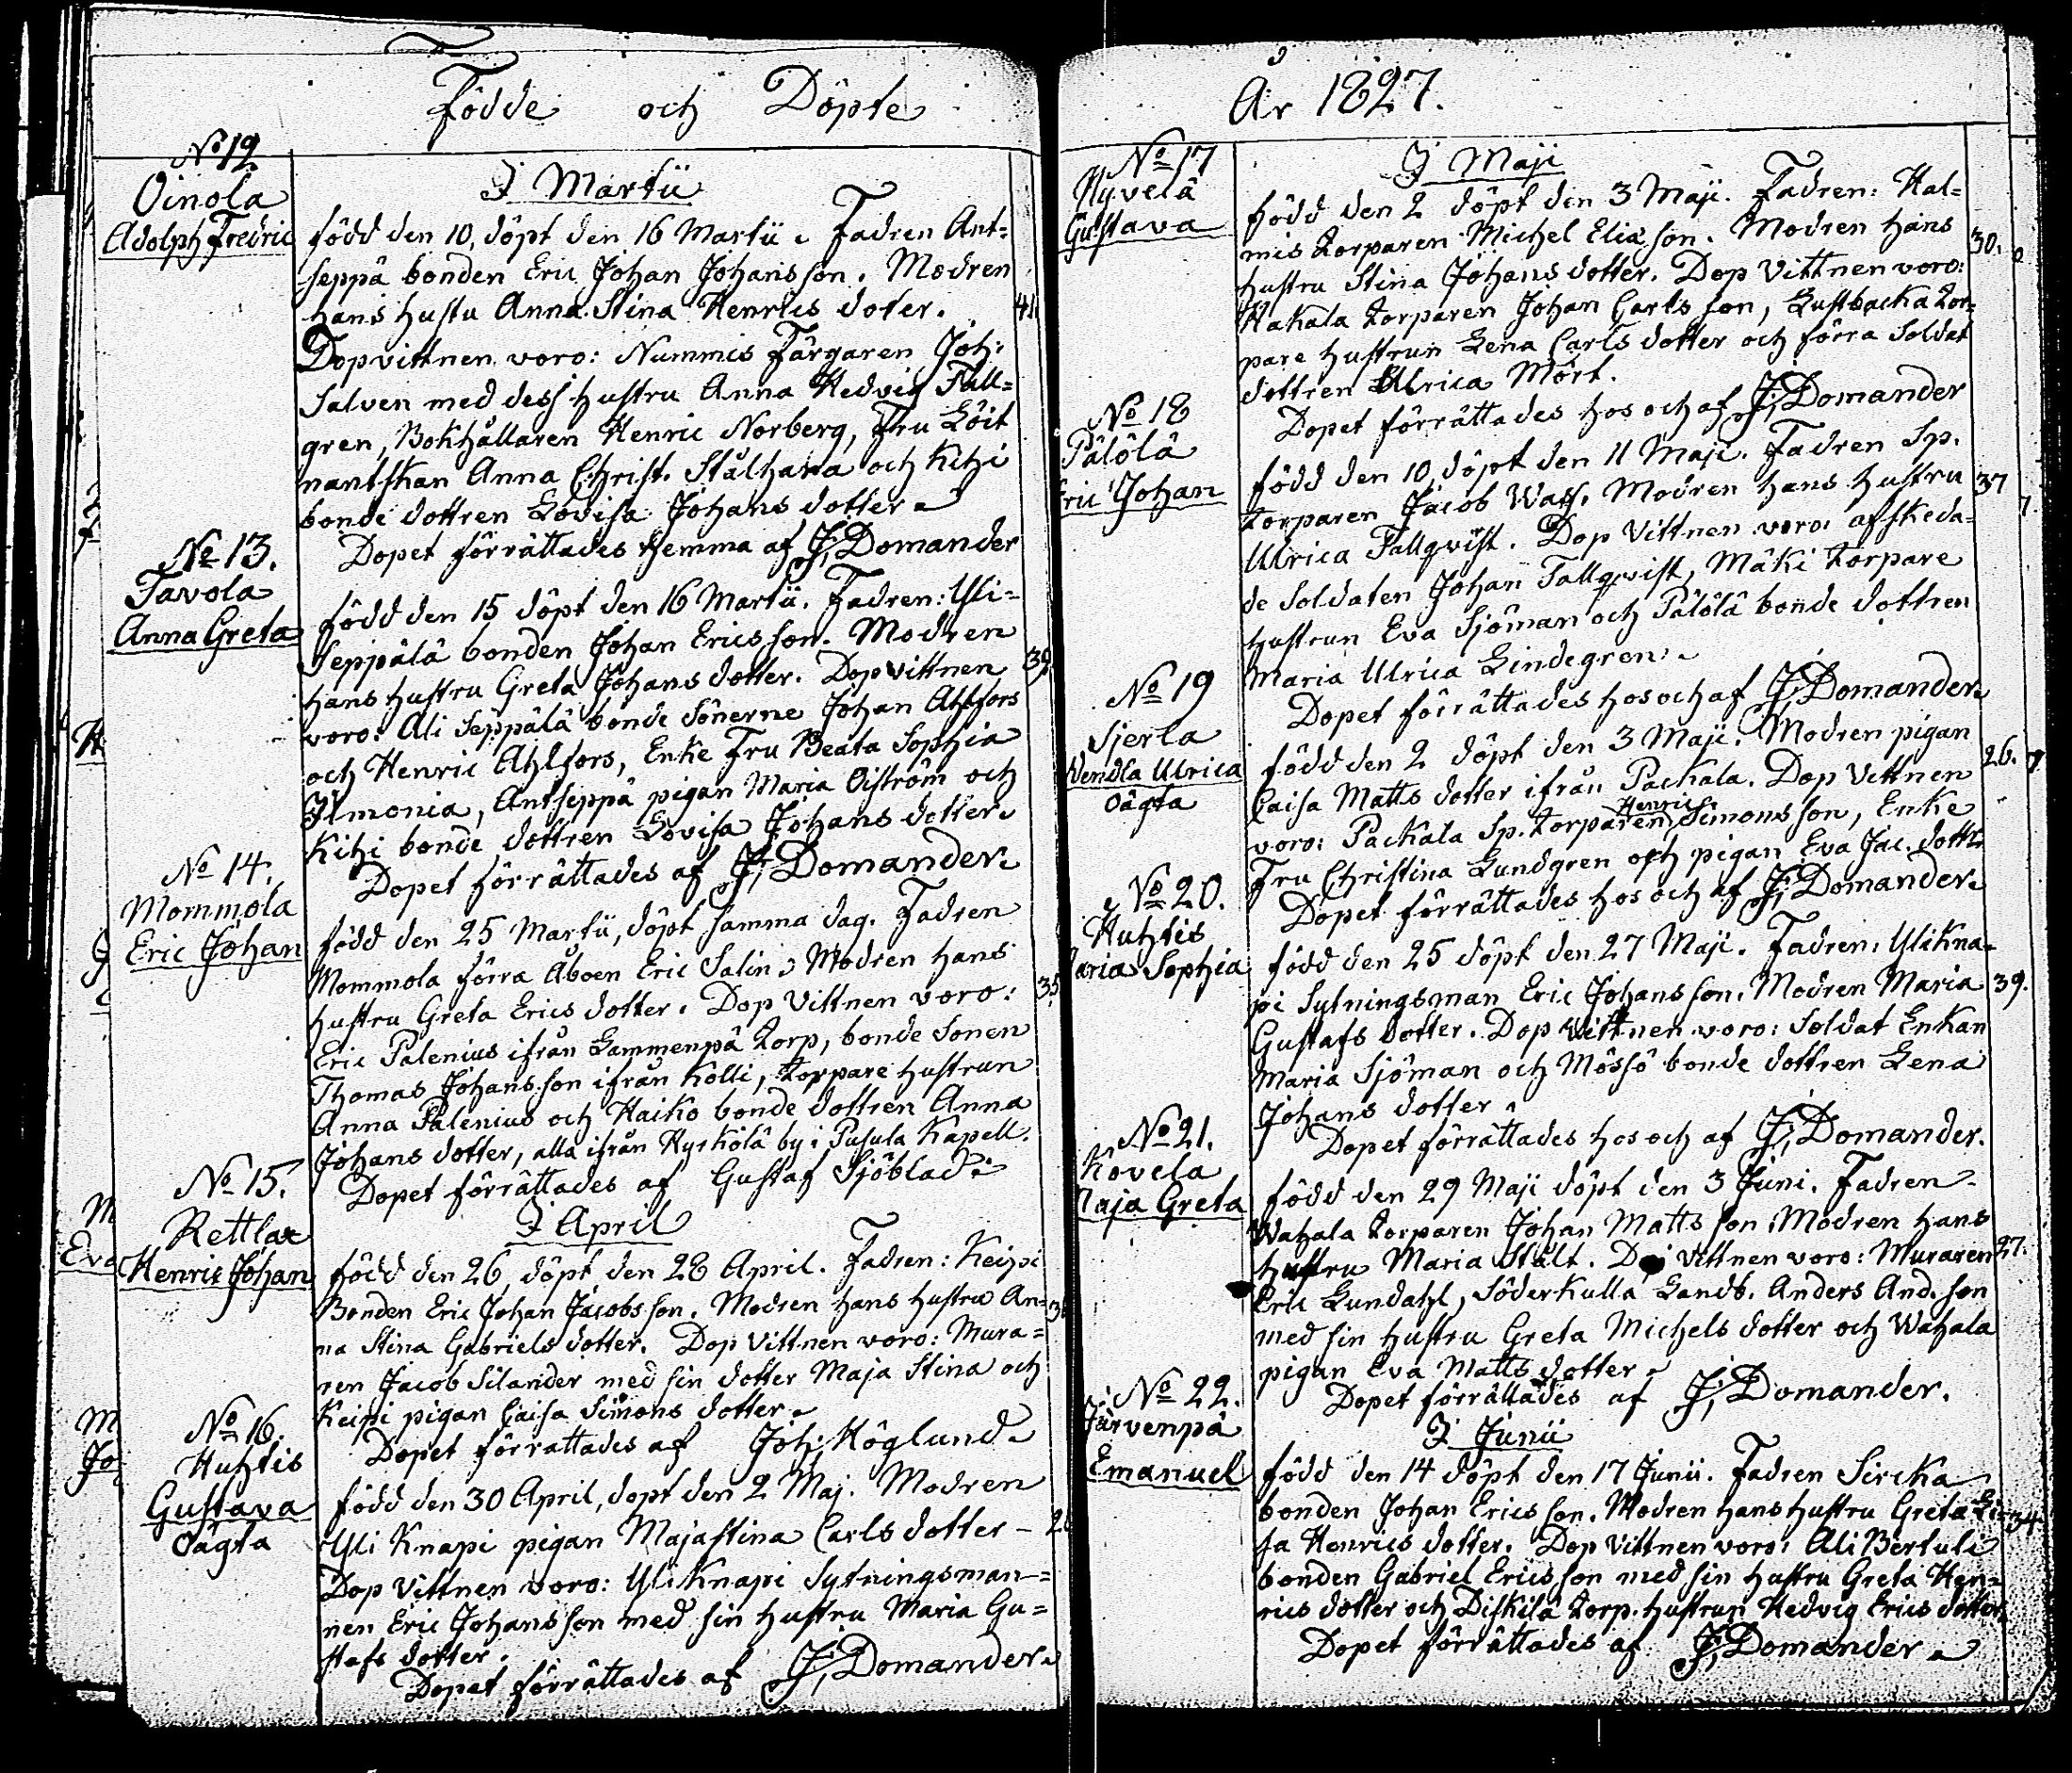 Födde och Döpte
No 12
Oinola
Adolph Fredric
I Martii
född den 10, döpt den 16 Martii. Fadren Ant=
seppä bonden Eric Johan Johansson. Modren
hans hustu Anna Stina Henrics doter.
41
Dopvittnen voro: Nummis Färgaren Joh:
Salven med dess hustru Anna Hedvig Tall=
gren, Bokhållaren Henric Norberg, Fru Löit
nantskan Anna Christ. Stålhana och Kihi
bonde dottren Lovisa Johans dotter.
Dopet förrättades hemma af J. Domander
No 13.
Tavola
Anna Greta
född den 15 döpt den 16 Martii. Fadren: Yli=
seppälä bonden Johan Ericsson. Modren
hans hustru Greta Johans dotter. Dopvittnen
39
voro: Ali Seppälä bonde Sönerne Johan Ahlfors
och Henric Ahlfors, Enke Fru Beata Sophia
Ilmonia, Antseppä pigan Maria Öiström och
Kihi bonde dottren Lovisa Johans dotter.
Dopet förrättades af J. Domander.
No 14.
Mommola
Eric Johan
född den 25 Martii, döpt samma dag. Fadren
Mommola förra Åboen Eric Salin. Modren hans
hustru Greta Erics dotter. Dop Vittnen voro:
35
Eric Palenius ifrån Lammenpä Torp, bonde Sonen
Thomas Johansson ifrån Kolli, torpare hustrun
Anna Palenius och Haiko bonde dottren Anna
Johans dotter, alla ifrån Hyrkölä by i Pusula Kapell.
Dopet förrättades af Gustaf Sjöblad.
No 15.
Rettlar
Henric Johan
I April
född den 26, döpt den 28 April. Fadren: Keipi
Bonden Eric Johan Jacobsson. Modren hans hustru An=
na Stina Gabriels dotter. Dop Vittnen voro: Mura=
ren Jacob Silander med sin dotter Maja Stina och
Keipi pigan Caisa Simons dotter.
Dopet förrattades af Joh: Höglund.
No 16.
Huhtis
Gustava
oägta
född den 30 April, dopt den 2 Maj. Modren
Yli Knapi pigan Majastina Carls dotter –
Dop Vittnen voro: Yli Knapi Sytningsman=
nen Eric Johansson med sin hustru Maria Gu=
stafs dotter.
Dopet förrättades af J. Domander.
År 1827.
No 17
Hyvelä
Gustava
I Maji
född den 2 döpt den 3 Maji. Fadren: Hal=
mis torparen Michel Elia son. Modren hans
30.
hustru Stina Johans dotter. Dop Vittnen voro:
Hakala torparen Johan Carls son, Lustbacka tor=
pare hustrun Lena Carls dotter och förra Soldat
dottren Ulrica Mört.
Dopet förrättades hos och af J. Domander
No 18
Pälölä
Eric Johan
född den 10 döpt den 11 Maji. Fadren Sp.
torparen Jacob Wass. Modren hans hustru
37
Ulrica Tallqvist. Dop Vittnen voro: afskeda=
de Soldaten Johan Tallqvist, Mäki torpare
hustrun Eva Sjöman och Pälölä bonde dottren
Maria Ulrica Lindegren.
Dopet förrättades hos och af J. Domander.
No 19
Sjerla
Vendla Ulrica
oägta
född den 2 döpt den 3 Maji. Modren pigan
26.
Caisa Matts dotter ifrån Packala. Dop Vittnen
voro: Packala Sp. torparen Henric Simons son, Enke
Fru Christina Lundgren och pigan Eva Jac. dottr
Dopet förrättades hos och af J. Domander.
No 20.
Huhtis
Maria Sophia
född den 25 döpt den 27 Maji. Fadren: Ylikna=
pi Sytningsman Eric Johansson. Modren Maria
39.
Gustafs dotter. Dop Vittnen voro: Soldat Enkan
Maria Sjöman och Mössö bonde dottren Lena
Johans dotter.
Dopet förrättades hos och af J. Domander.
No 21.
Kovela
Maja Greta
född den 29 Maji döpt den 3 Juni. Fadren
Wahala torparen Johan Matts son. Modren hans
hustru Maria Stålt. Dop Vittnen voro: Muraren
27.
Eric Lundahl, Söderkulla Landb. Anders And. son
med sin hustru Greta Michels dotter och Wahala
pigan Eva Matts dotter.
Dopet förrättades af J. Domander.
No 22.
Järvenpä
Emanuel
I Junii
född den 14 döpt den 17 Junii. Fadren Sircka
bonden Johan Erics son. Modren hans hustru Greta Li=
34
sa Henrics dotter. Dop Vittnen voro: Ali Bertula
bonden Gabriel Ericsson med sin hustru Greta Hen=
rics dotter och Diskilä torp. hustrun Hedvig Erics dotter.
Dopet förrättades af J. Domander.